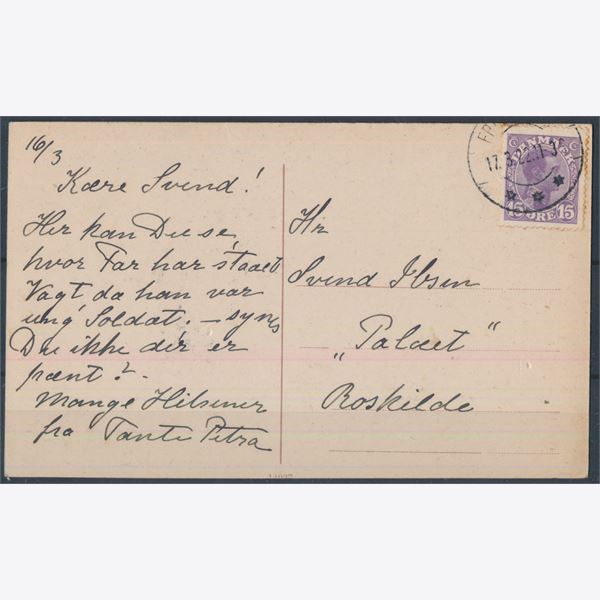 16/3
Kære Svend!
Her kan Du se,
hvor Far har staaet
Vagt, da han var
ung Soldat. — syns
Du ikke der er
pænt? -
Mange Hilsener
fra Tante Petra
Hr
Svend Ibsen
"Palæet"
Roskilde
17.3.22.11-
DANMARK
15 ØRE 15